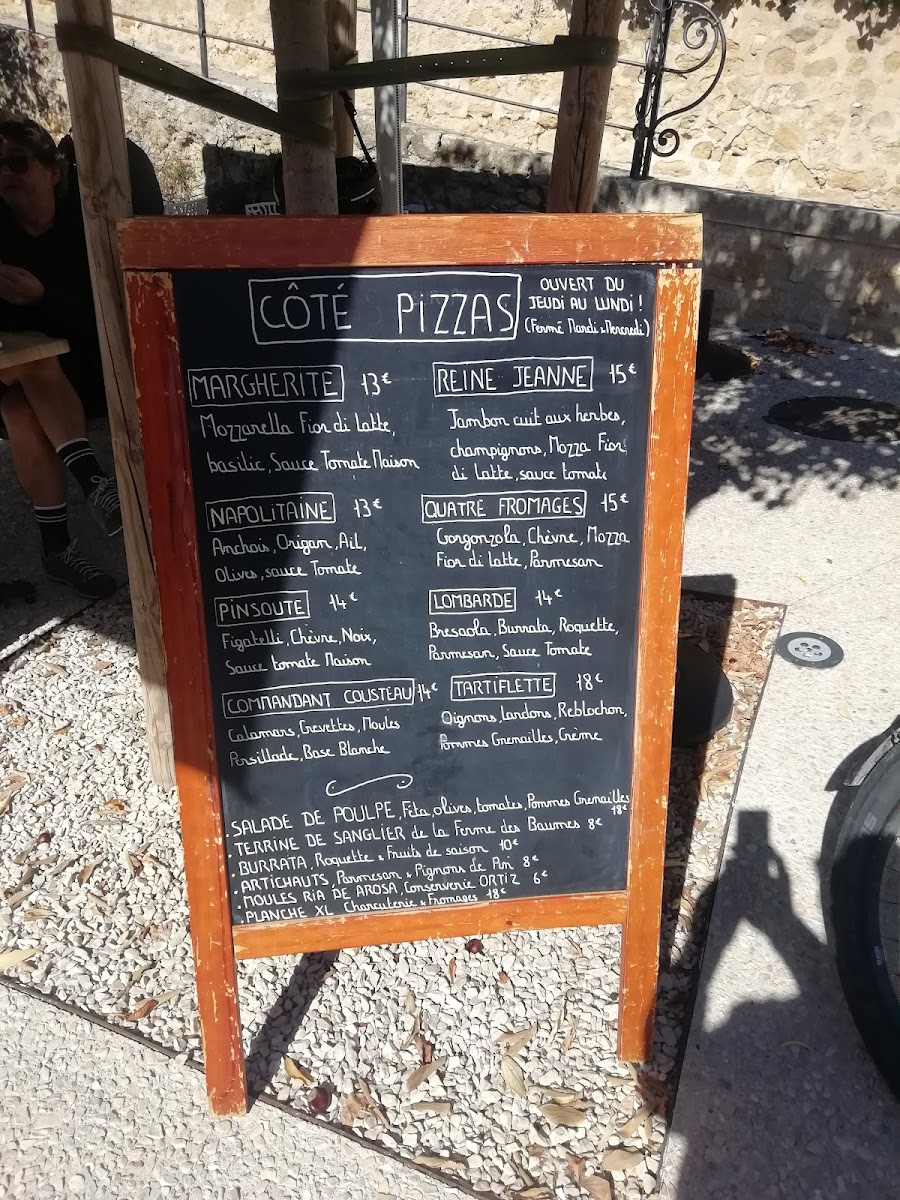 CÔTÉ PIZZAS
OUVERT DU
JEUDI AU LUNDI !
(Fermé Mardi & Mercredi)
MARGHERITE 13€
Mozzarella Fior di Latte,
basilic, Sauce Tomate Maison
NAPOLITAINE 13€
Anchois, Origan, Ail,
Olives, sauce Tomate
PINSOUTE 14€
Figatelli, Chèvre, Noix,
Sauce tomate Maison
COMMANDANT COUSTEAU 14€
Calamars, Crevettes, Moules
Persillade, Base Blanche
REINE JEANNE 15€
Jambon cuit aux herbes,
champignons, Mozza Fior
di Latte, sauce tomate
QUATRE FROMAGES 15€
Gorgonzola, Chèvre, Mozza
Fior di latte, Parmesan
LOMBARDE 14€
Bresaola, Burrata, Roquette,
Parmesan, Sauce Tomate
TARTIFLETTE 18€
Oignons, Lardons, Reblochon,
Pommes Grenailles, Crème
SALADE DE POULPE, Féta, olives, tomates, Pommes Grenailles
18€
. TERRINE DE SANGLIER de la Ferme des Baumes 8€
. BURRATA, Roquette & Fruits de saison 10€
. ARTICHAUTS, Parmesan & Pignons de Pin 8€
. MOULES RIA DE AROSA, Conserverie ORTIZ 6€
. PLANCHE XL Charcuterie & Fromages 18€